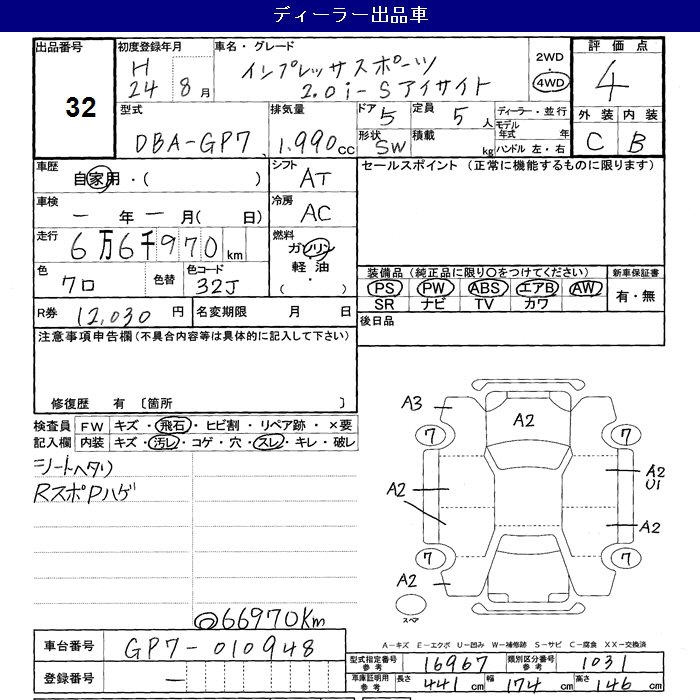 ディーラー出品車
出品番号 32
初度登録年月 H 24 8月
車名・グレード インプレッサスポーツ 2.0i-Sアイサイト
2WD・4WD
評価点 4
外装 C 内装 B
型式 DBA-GP7
排気量 1,990cc
ドア 5 形状 SW
定員 5人 積載 kg
ディーラー・並行
モデル年式 年
ハンドル 左・右
車歴 自家用・( )
シフト AT
セールスポイント (正常に機能するものに限ります)
車検 ー年ー月( 日)
冷房 AC
走行 6万6千970km
燃料 ガソリン 軽油 ( ・ )
色 クロ 色替 色コード 32J
装備品(純正品に限り○をつけてください)
PS PW ABS エアB AW
SR ナビ TV カワ
新車保証書 有・無
R券 12,030円 名変期限 月 日
後日品
注意事項申告欄(不具合内容等は具体的に記入して下さい)
修復歴 有 〔箇所 〕
検査員記入欄
FW キズ・飛石・ヒビ割・リペア跡・×要
内装 キズ・汚レ・コゲ・穴・スレ・キレ・破レ
シートヘタリ
RスポPハゲ
66970Km
A3
A2
7
7
A2
A2
U1
A2
7
7
A2
スペア
A－キズ E－エクボ U－凹み W－補修跡 S－サビ C－腐食 XX－交換済
車台番号 GP7-010948
登録番号 ー
型式指定番号 参考 16967 類別区分番号 参考 1031
車庫証明用 参考 長さ 441cm 幅 174cm 高さ 146cm